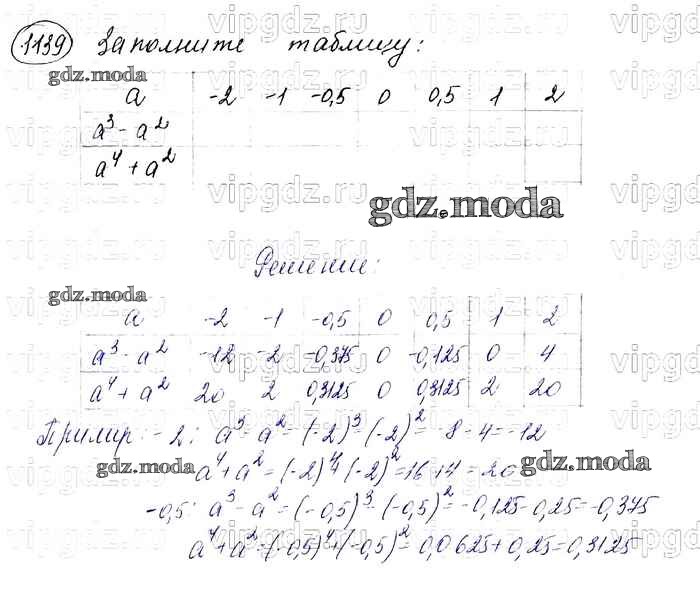 1139 Заполните таблицу:
a -2 -1 -0,5 0 0,5 1 2
a³ - a²
a⁴ + a²
Решение:
a -2 -1 -0,5 0 0,5 1 2
a³ - a² -12 -2 -0,375 0 -0,125 0 4
a⁴ + a² 20 2 0,3125 0 0,3125 2 20
Пример: -2: a³ - a² = (-2)³ - (-2)² = -8 - 4 = -12
a⁴ + a² = (-2)⁴ + (-2)² = 16 + 4 = 20
-0,5: a³ - a² = (-0,5)³ - (-0,5)² = -0,125 - 0,25 = -0,375
a⁴ + a² = (-0,5)⁴ + (-0,5)² = 0,0625 + 0,25 = 0,3125
gdz.moda
gdz.moda
gdz.moda
gdz.moda
gdz.moda
vipgdz.ru